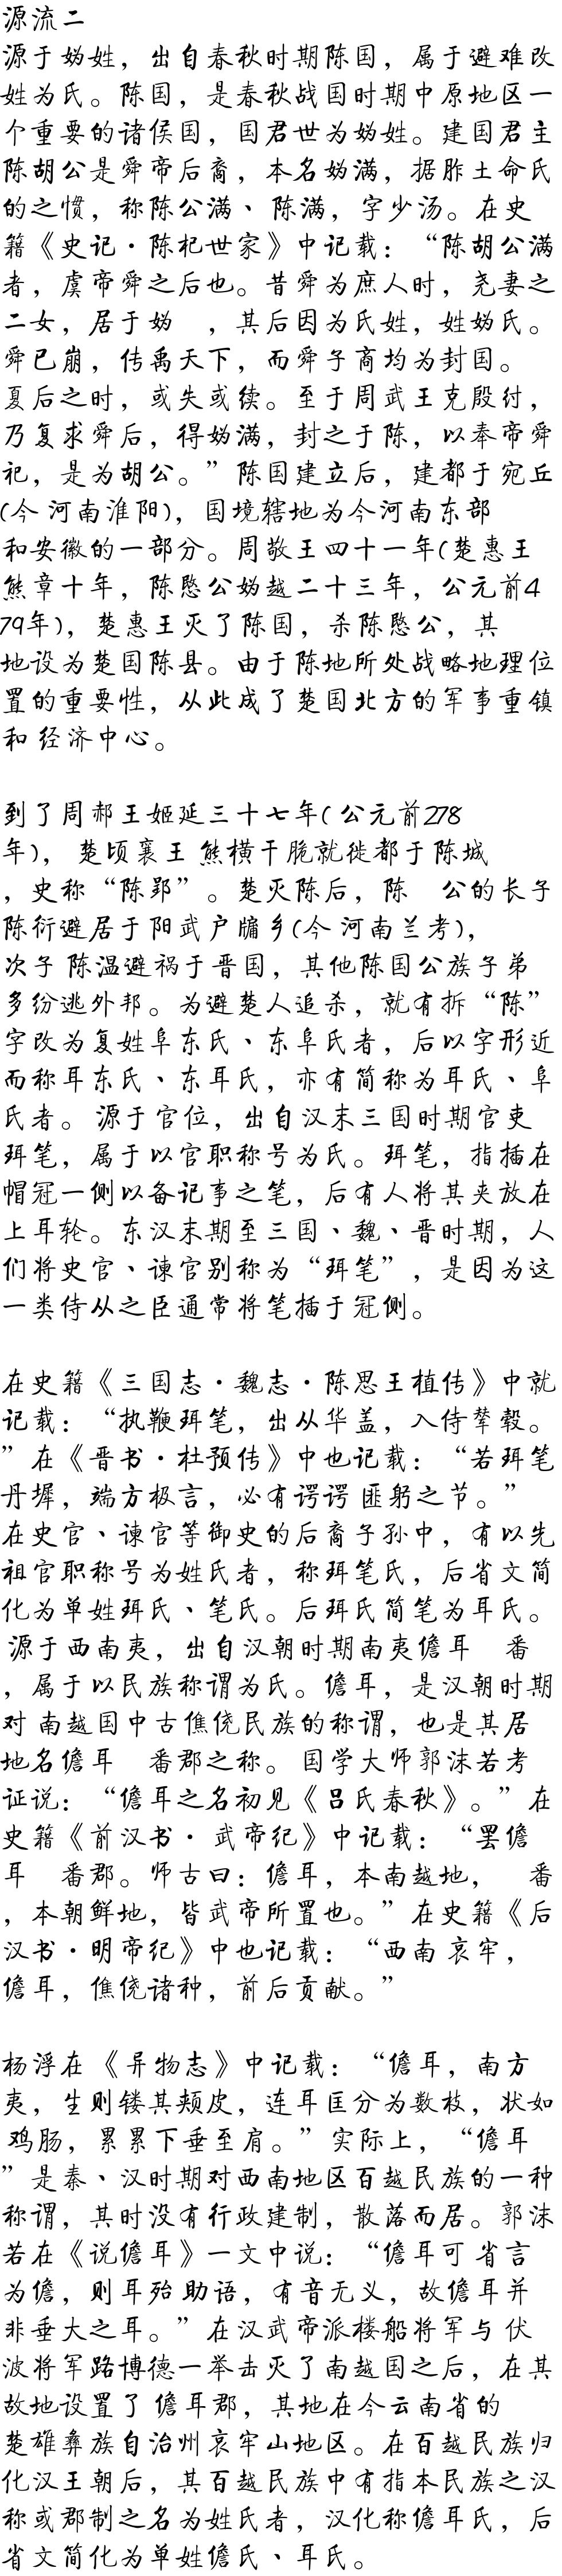 源流二
源于妫姓，出自春秋时期陈国，属于避难改
姓为氏。陈国，是春秋战国时期中原地区一
个重要的诸侯国，国君世为妫姓。建国君主
陈胡公是舜帝后裔，本名妫满，据胙土命氏
的之惯，称陈公满、陈满，字少汤。在史
籍《史记·陈杞世家》中记载：“陈胡公满
者，虞帝舜之后也。昔舜为庶人时，尧妻之
二女，居于妫　，其后因为氏姓，姓妫氏。
舜已崩，传禹天下，而舜子商均为封国。
夏后之时，或失或续。至于周武王克殷纣，
乃复求舜后，得妫满，封之于陈，以奉帝舜
祀，是为胡公。”陈国建立后，建都于宛丘
(今 河南淮阳)，国境辖地为今河南东部
和安徽的一部分。周敬王四十一年(楚惠王
熊章十年，陈愍公妫越二十三年，公元前4
79年)，楚惠王灭了陈国，杀陈愍公，其
地设为楚国陈县。由于陈地所处战略地理位
置的重要性，从此成了楚国北方的军事重镇
和 经济中心。

到了周郝王姬延三十七年( 公元前278
年)， 楚顷襄王 熊横干脆就徙都于陈城
，史称“陈郢”。楚灭陈后，陈　公的长子
陈衍避居于阳武户牖乡(今 河南兰考)，
次子 陈温避祸于晋国，其他陈国公族子弟
多纷逃外邦。为避楚人追杀，就有拆“陈”
字改为复姓阜东氏、东阜氏者，后以字形近
而称耳东氏、东耳氏，亦有简称为耳氏、阜
氏者。 源于官位，出自汉末三国时期官吏
珥笔，属于以官职称号为氏。珥笔，指插在
帽冠一侧以备记事之笔，后有人将其夹放在
上耳轮。东汉末期至三国、魏、晋时期，人
们将史官、谏官别称为“珥笔”，是因为这
一类侍从之臣通常将笔插于冠侧。

在史籍《三国志·魏志·陈思王植传》中就
记载：“执鞭珥笔，出从华盖，入侍辇毂。
”在《晋书·杜预传》中也记载：“若珥笔
丹墀，端方极言，必有谔谔 匪躬之节。”
在史官、谏官等御史的后裔子孙中，有以先
祖官职称号为姓氏者，称珥笔氏，后省文简
化为单姓珥氏、笔氏。后珥氏简笔为耳氏。
源于西南夷，出自汉朝时期南夷儋耳　番
，属于以民族称谓为氏。儋耳，是汉朝时期
对 南越国中古僬侥民族的称谓，也是其居
地名儋耳　番郡之称。 国学大师郭沫若考
证说：“儋耳之名初见《吕氏春秋》。”在
史籍《前汉书· 武帝纪》中记载：“罢儋
耳　番郡。师古曰：儋耳，本南越地，　番
，本朝鲜地，皆武帝所置也。”在史籍《后
汉书·明帝纪》中也记载：“西南 哀牢，
儋耳，僬侥诸种，前后贡献。”

杨浮在 《 异物志》中记载：“儋耳，南方
夷，生则镂其颊皮，连耳匡分为数枝，状如
鸡肠，累累下垂至肩。”实际上，“儋耳
”是秦、汉时期对西南地区百越民族的一种
称谓，其时没有行政建制，散落而居。郭沫
若在《说儋耳》一文中说：“儋耳可 省言
为儋，则耳殆 助语，有音无义，故儋耳并
非垂大之耳。”在汉武帝派楼船将军与 伏
波将军路博德一举击灭了南越国之后，在其
故地设置了 儋耳郡，其地在今云南省的
楚雄彝族自治州哀牢山地区。在百越民族归
化汉王朝后，其百越民族中有指本民族之汉
称或郡制之名为姓氏者，汉化称儋耳氏，后
省文简化为单姓儋氏、耳氏。